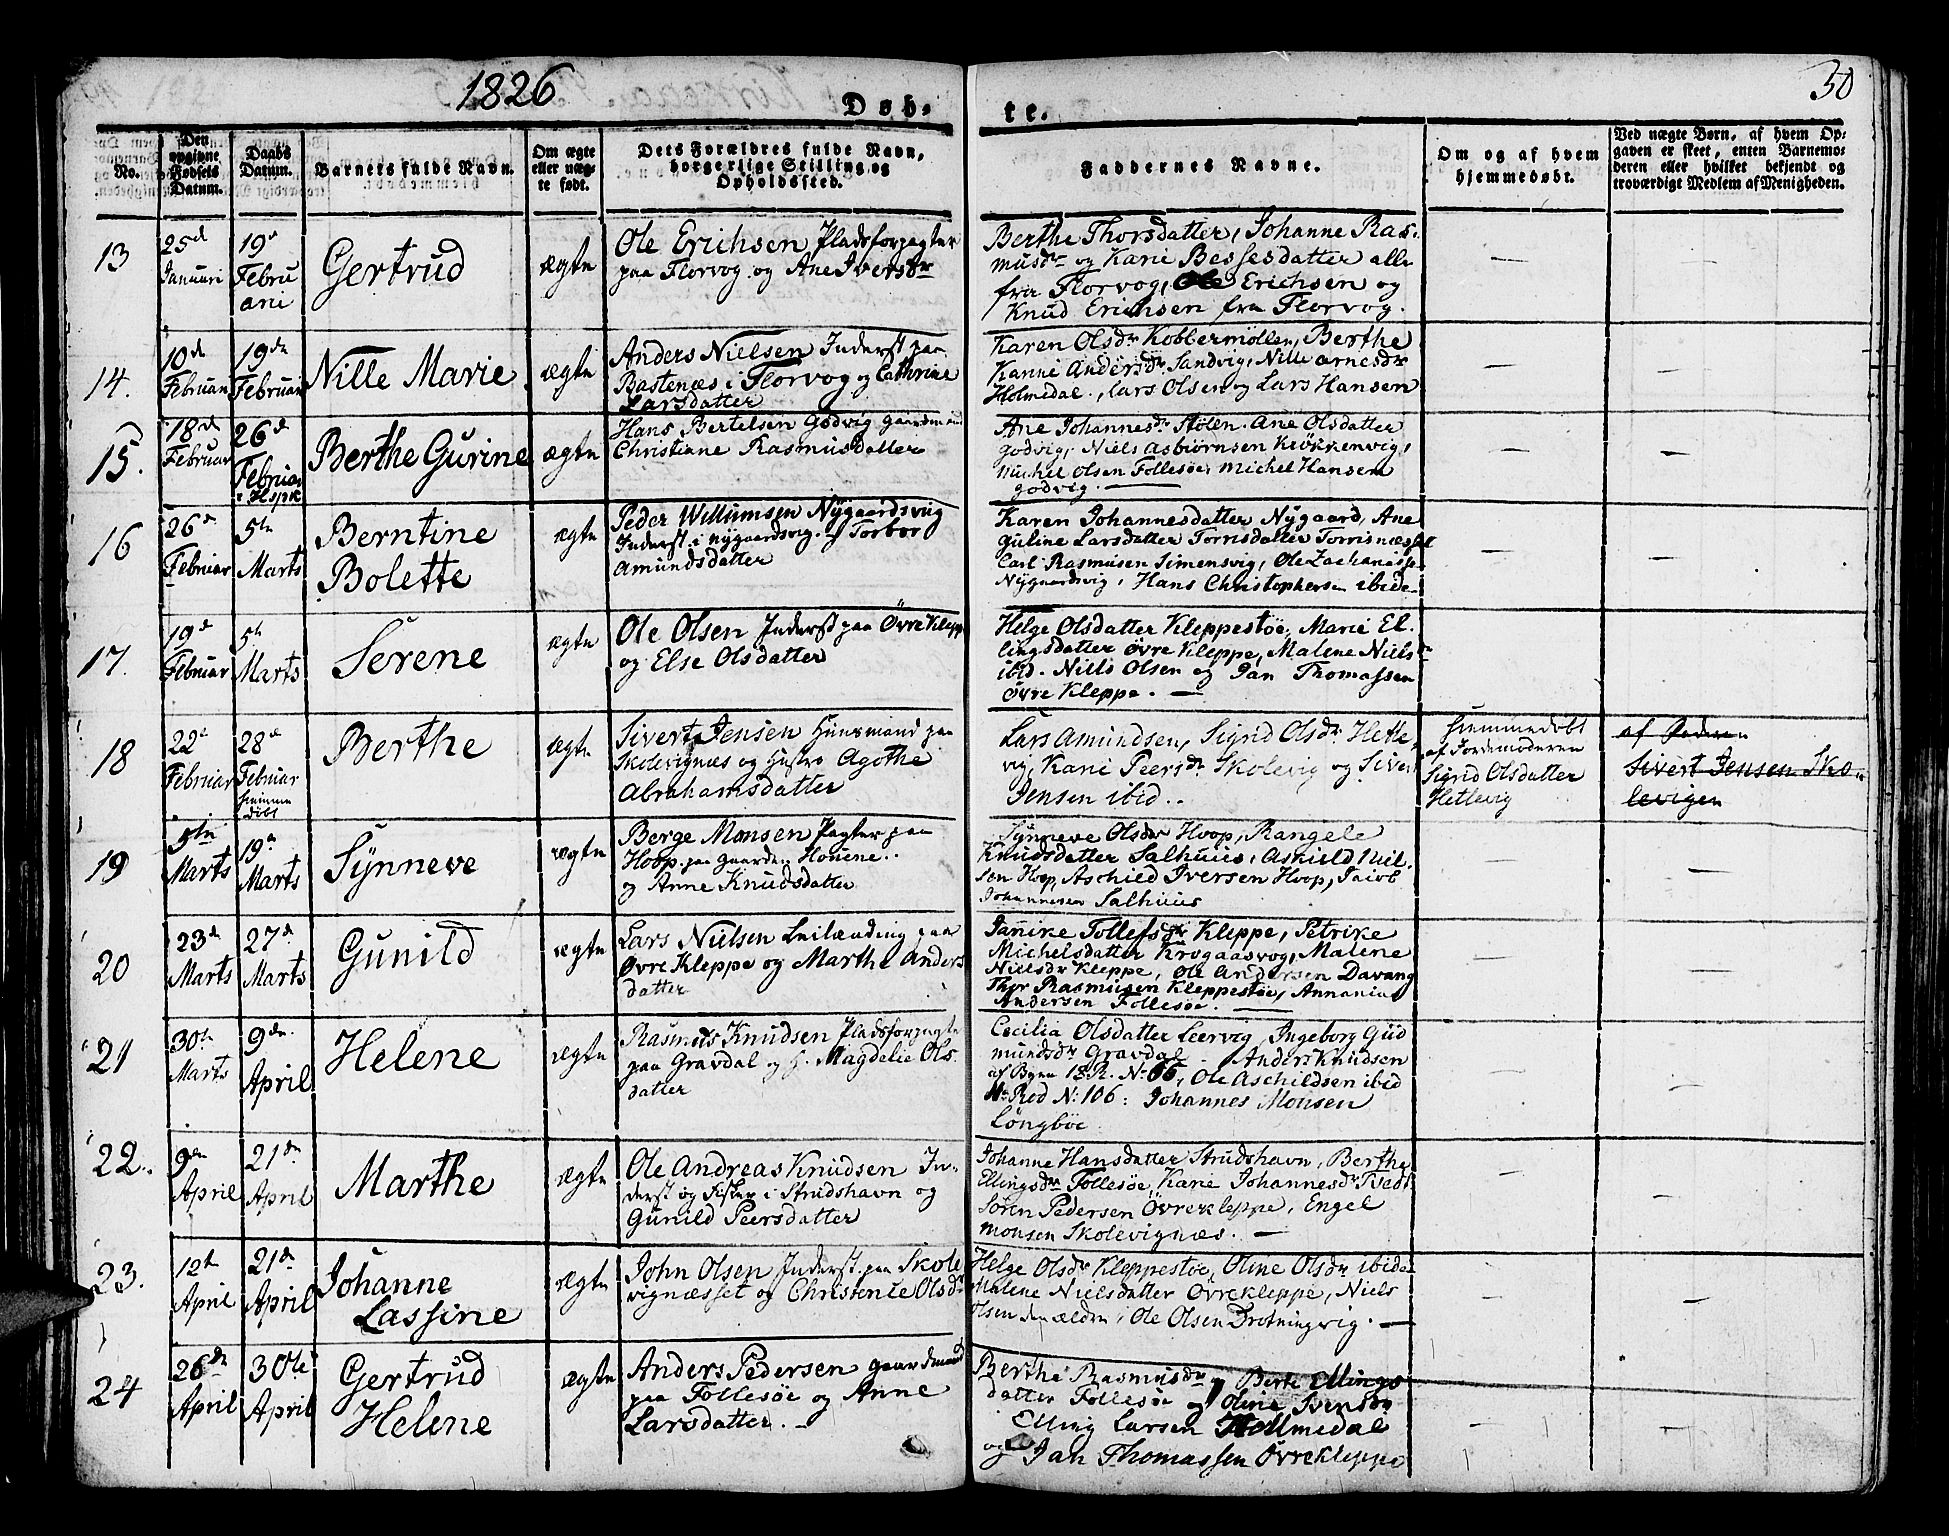 1826
Døb-
te.
30
No.
Den opgivne Fødsels Datum.
Daabs Datum.
Barnets fulde Navn.
Om ægte eller uægte født.
Dets Forældres fulde Navn, borgerlige Stilling og Opholdssted.
Faddernes Navne.
Om og af hvem hjemmedøbt.
Ved uægte Børn, af hvem Opgaven er skeet, enten Barnemoderen eller hvilket bekjendt og troværdigt Medlem af Menigheden.
13
25d
Januari
19d
Febru
ari
Gertrud
ægte
Ole Erichsen Pladsforpagter
paa Florvog og Ane Iversdr
Berthe Thorsdatter, Johanne Ras-
musdr og Kari Bessesdatter alle
fra Florvog, Ole Erichsen og
Knud Erichsen fra Florvog.
14.
10d
Februari
19de
Februari
Nille Marie
ægte
Anders Nielsen Inderst paa
Bastenæs i Florvog og Cathrine
Larsdatter
Karen Olsdr Koblermøllen, Berthe
Karine Andersdr Sandvig, Nille Arnesdr
Holmedal, Lars Olsen og Lars Hansen
15.
18d
Februar
26d
Februar
Berthe Gurine
ægte
Hans Bertelsen Godvig Gaardmand
Christiane Rasmusdatter
Ane Johannesdr Stølen. Ane Olsdatter
Godvig, Niels Asbiørnsen Krökkenvig,
Michel Olsen Follesøe, Michel Hansen
Godvig.
16
26d
Februar
5te
Marts
Berntine
Bolette
ægte
Peder Willumsen Nygaardsvig
Inderst i Nygaardsvig og Torbor
Amundsdatter
Karen Johannesdatter Nygaard, Ane
Guline Larsdatter Torrisdatter Torrisnæsset
Carl Rasmusen Simensvig, Ole Zachariasse
Nygaardsvig, Hans Christophersen ibide
17.
19d
Februar
5te
Marts
Serene
ægte
Ole Olsen Inderst paa Övre Klepp
og Else Olsdatter
Helge Olsdatter Kleppestöe, Marie El-
lingsdatter Övre Kleppe, Malene Nielsdr
ibid. Niels Olsen og Jan Thomassen
Övre Kleppe.
18
22d
Februar
28d
Februar
hiemme
döbt
Berthe
ægte
Sivert Jensen Huusmand paa
Skolevignæs og Hustro Agothe
Abrahamsdatter
Lars Amundsen, Sigrid Olsdr Hetle
vig, Kari Peersdr Skolevig og Sivert
Jensen ibid.
hiemmedøbt
af Jordemoderen
Sigrid Olsdatter
Hetlevig
af Faderen
Sivert Jensen Sko-
levigen
19
5te
Marts
19d
Marts
Synneve
ægte
Berge Monsen Pagter paa
Hoop paa Gaarden Houene..
og Anne Knudsdatter
Synneve Olsdr Hoop, Rangele
Knudsdatter Salhuus, Askild Niel-
sen Hoop, Aschild Iversen Hoop, Jacob
Johannesen Salhuus
20
23d
Marts
27d
Marts
Gunild
ægte
Lars Nielsen Leilænding paa
Övre Kleppe og Marthe Anders
datter
Janike Tollefsdr Kleppe, Petrike
Michelsdatter Krogaasvog, Malene
Nielsdr Kleppe, Ole Andersen Davang
Thor Rasmusen Kleppestöe, Annanias
Andersen Follesöe.
21
30te
Marts
9de
April
Helene
ægte
Rasmus Knudsen Pladsforpagter
paa Gravdal og H. Magdelie Ols-
datter
Cecilia Olsdatter Leervog, Ingeborg Gud
mundsdr Gravdal. Anders Knudsen
af Byen 18 R. No 66, Ole Aschildsen ibid
Rod No 106: Johannes Monsen
Löngböe
22.
9de
April
21de
April
Marthe
ægte
Ole Andreas Knudsen In-
derst og Fisker i Strudshavn og
Gunild Peersdatter
Johanne Hansdatter Strudshavn, Berthe
Ellingsdr Follesöe Kari Johannesdr Tvedt
Sören Pedersen Övrekleppe, Engel
Monsen Skolevignæs.
23.
12te
April
21de
April
Johanne
Lassine
ægte
John Olsen Inderst paa Skole
vignæsset og Christense Olsdr
Helge Olsdr Kleppestöe, Oline Olsdr ibide
Malene Nielsdatter Övrekleppe, Niels
Olsen den ældre, Ole Olsen Drotningvig.
24
26de
April
30te
April
Gertrud
Helene
ægte
Anders Pedersen Gaardmand
paa Follesöe og Anne
Larsdatter.
Berthe Rasmusdr, Berte Ellings
datter Follesöe og Oline Svensdr
Elling Larsen Hollmedal
og Jan Thomassen Övrekleppe